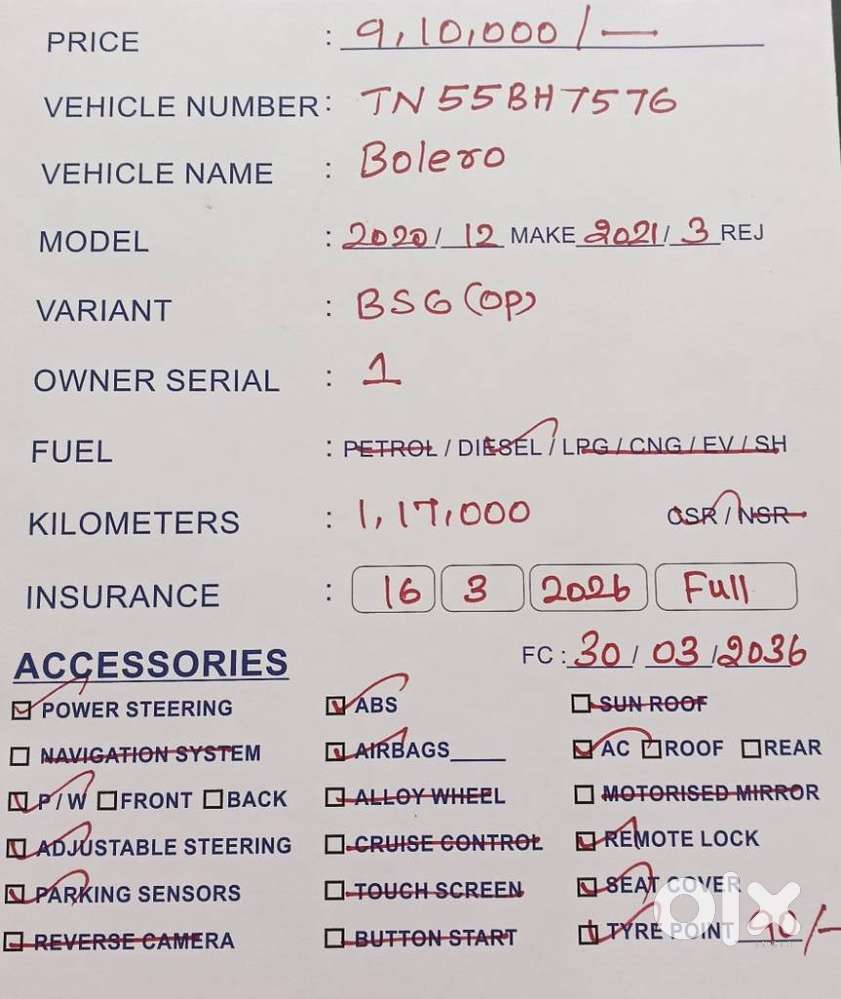 PRICE : 9,10,000/—
VEHICLE NUMBER : TN 55BH7576
VEHICLE NAME : Bolero
MODEL : 2020 / 12 MAKE 2021 / 3 REJ
VARIANT : BS6 (OP)
OWNER SERIAL : 1
FUEL : PETROL / DIESEL / LPG / CNG / EV / SH
KILOMETERS : 1,17,000 CSR / NSR
INSURANCE : 16 3 2026 Full
ACCESSORIES FC : 30 / 03 / 2036
POWER STEERING ABS SUN ROOF
NAVIGATION SYSTEM AIRBAGS____ AC ROOF REAR
P / W FRONT BACK ALLOY WHEEL MOTORISED MIRROR
ADJUSTABLE STEERING CRUISE CONTROL REMOTE LOCK
PARKING SENSORS TOUCH SCREEN SEAT COVER
REVERSE CAMERA BUTTON START TYRE POINT 90/-
olx